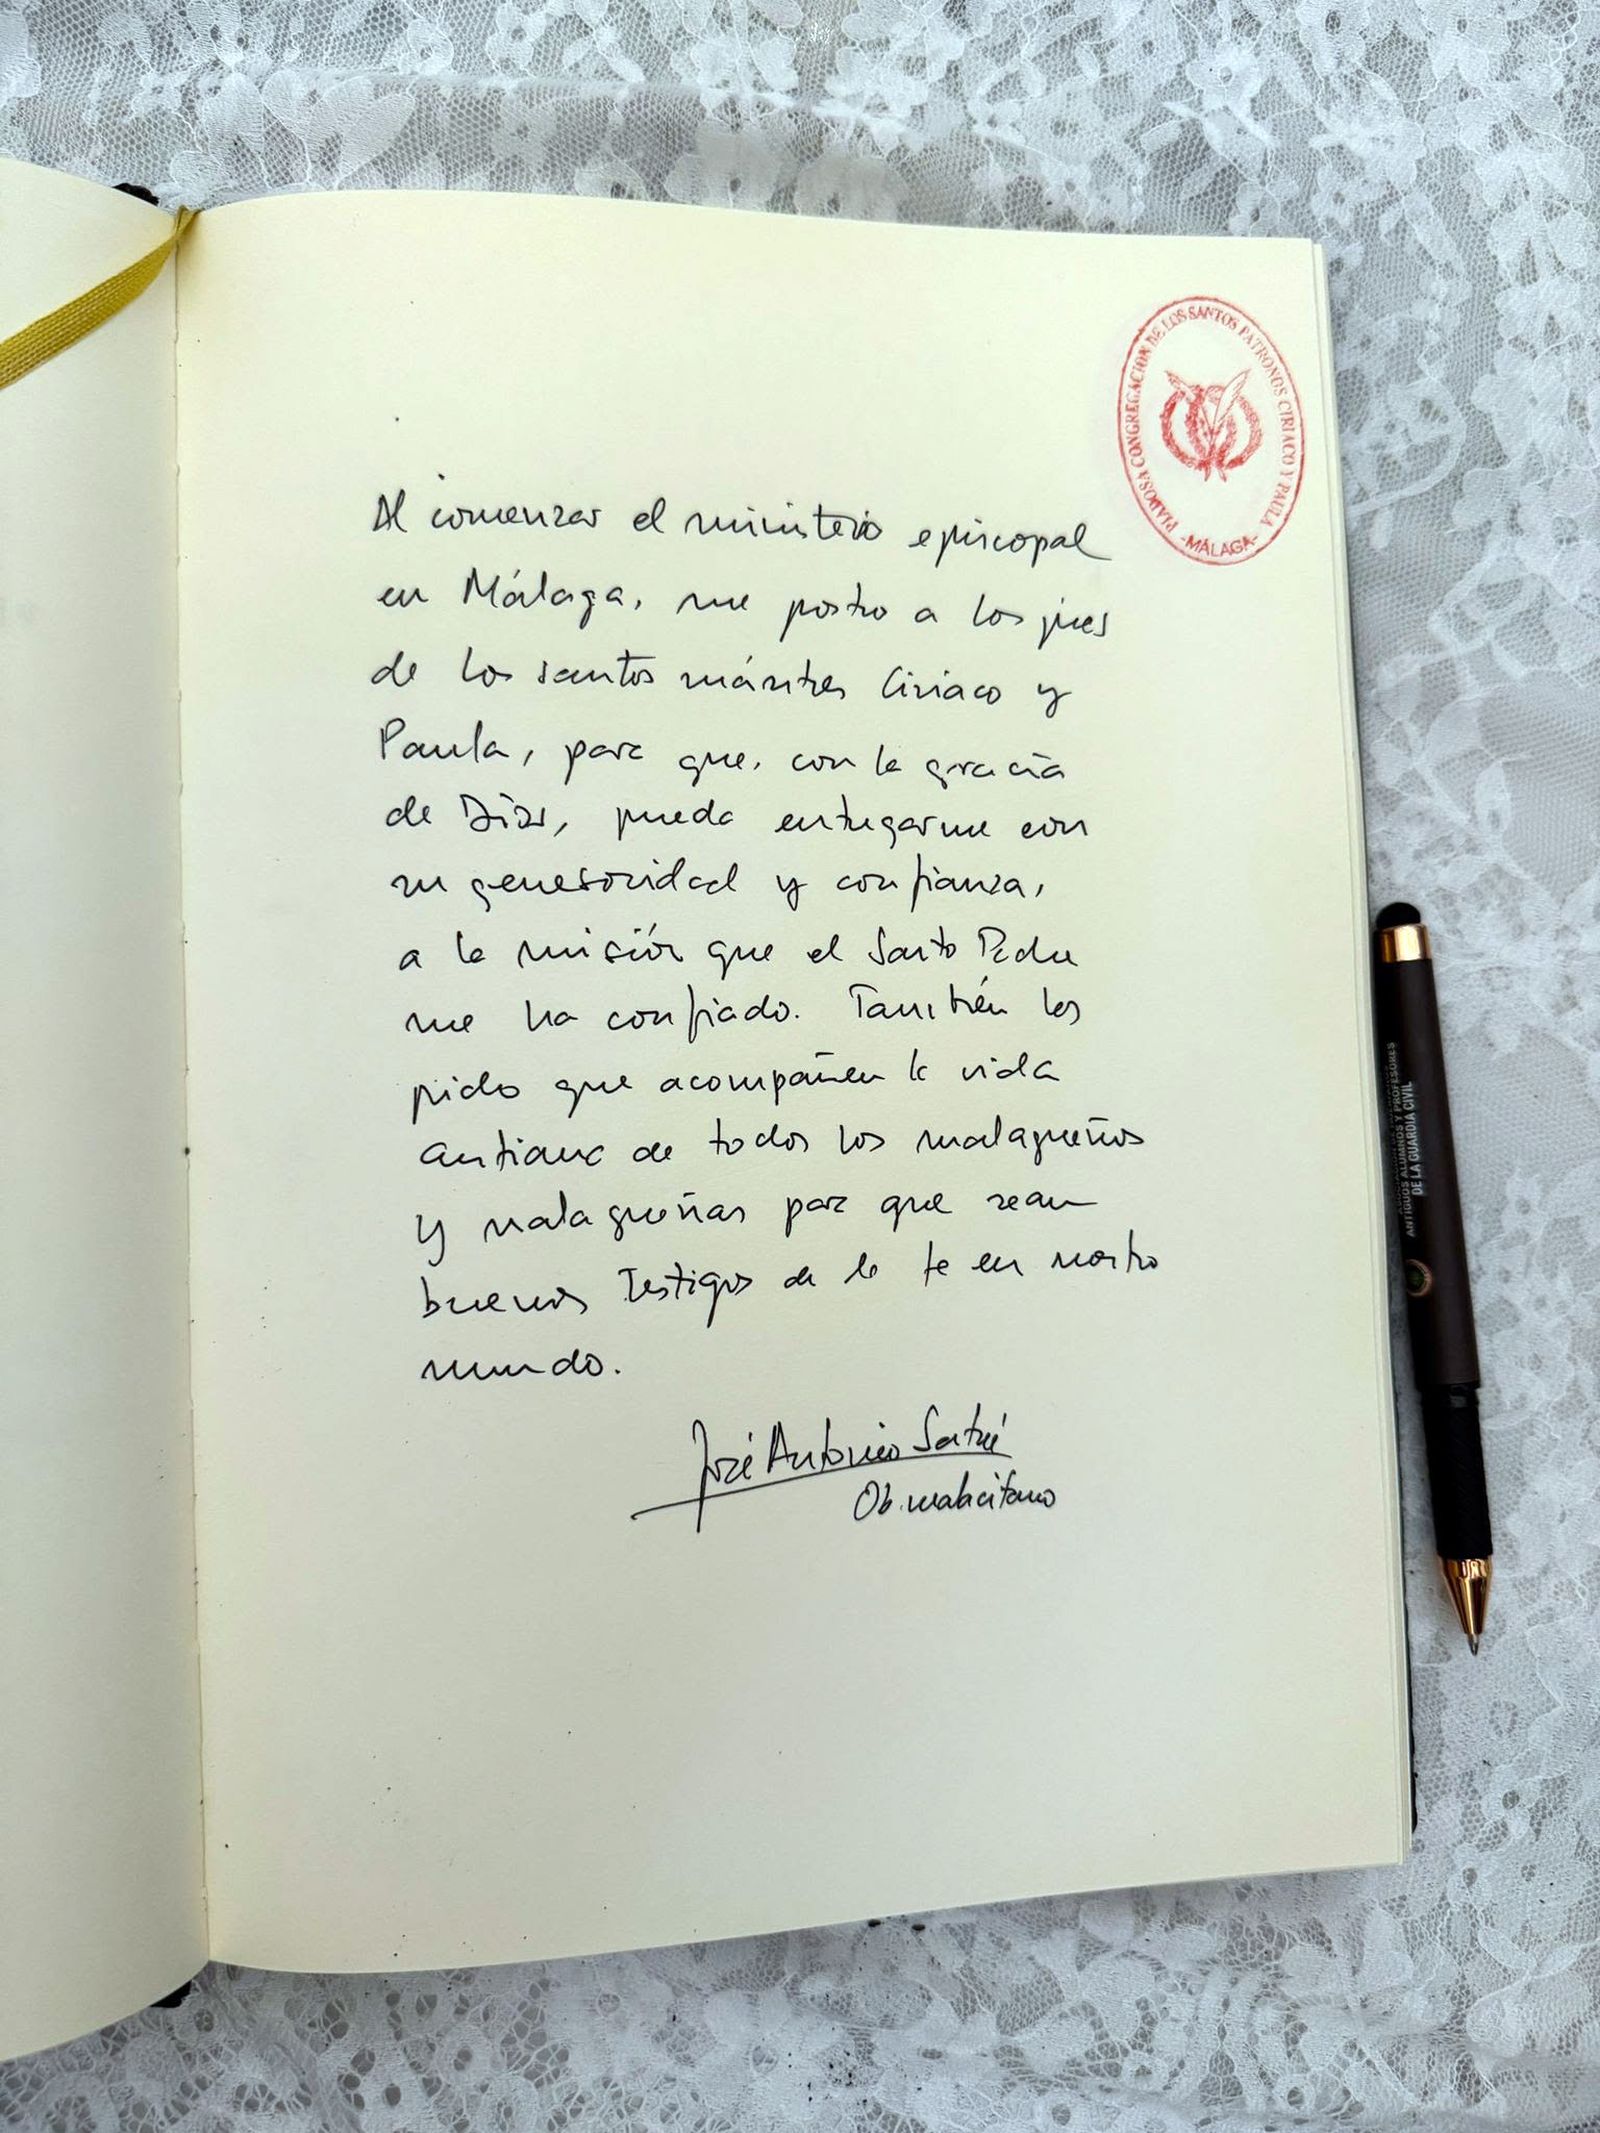 PIADOSA CONGREGACION DE LOS SANTOS PATRONOS CIRIACO Y PAULA
-MÁLAGA-
Al comenzar el ministerio episcopal
en Málaga, me postro a los pies
de los santos mártires Ciriaco y
Paula, para que, con la gracia
de Dios, pueda entregarme con
su generosidad y confianza,
a la misión que el Santo Padre
me ha confiado. También les
pido que acompañen la vida
cristiana de todos los malagueños
y malagueñas para que sean
buenos testigos de la fe en nuestro
mundo.
José Antonio Satué
Ob. malacitano
ANTIGUOS ALUMNOS Y PROFESORES
DE LA GUARDIA CIVIL